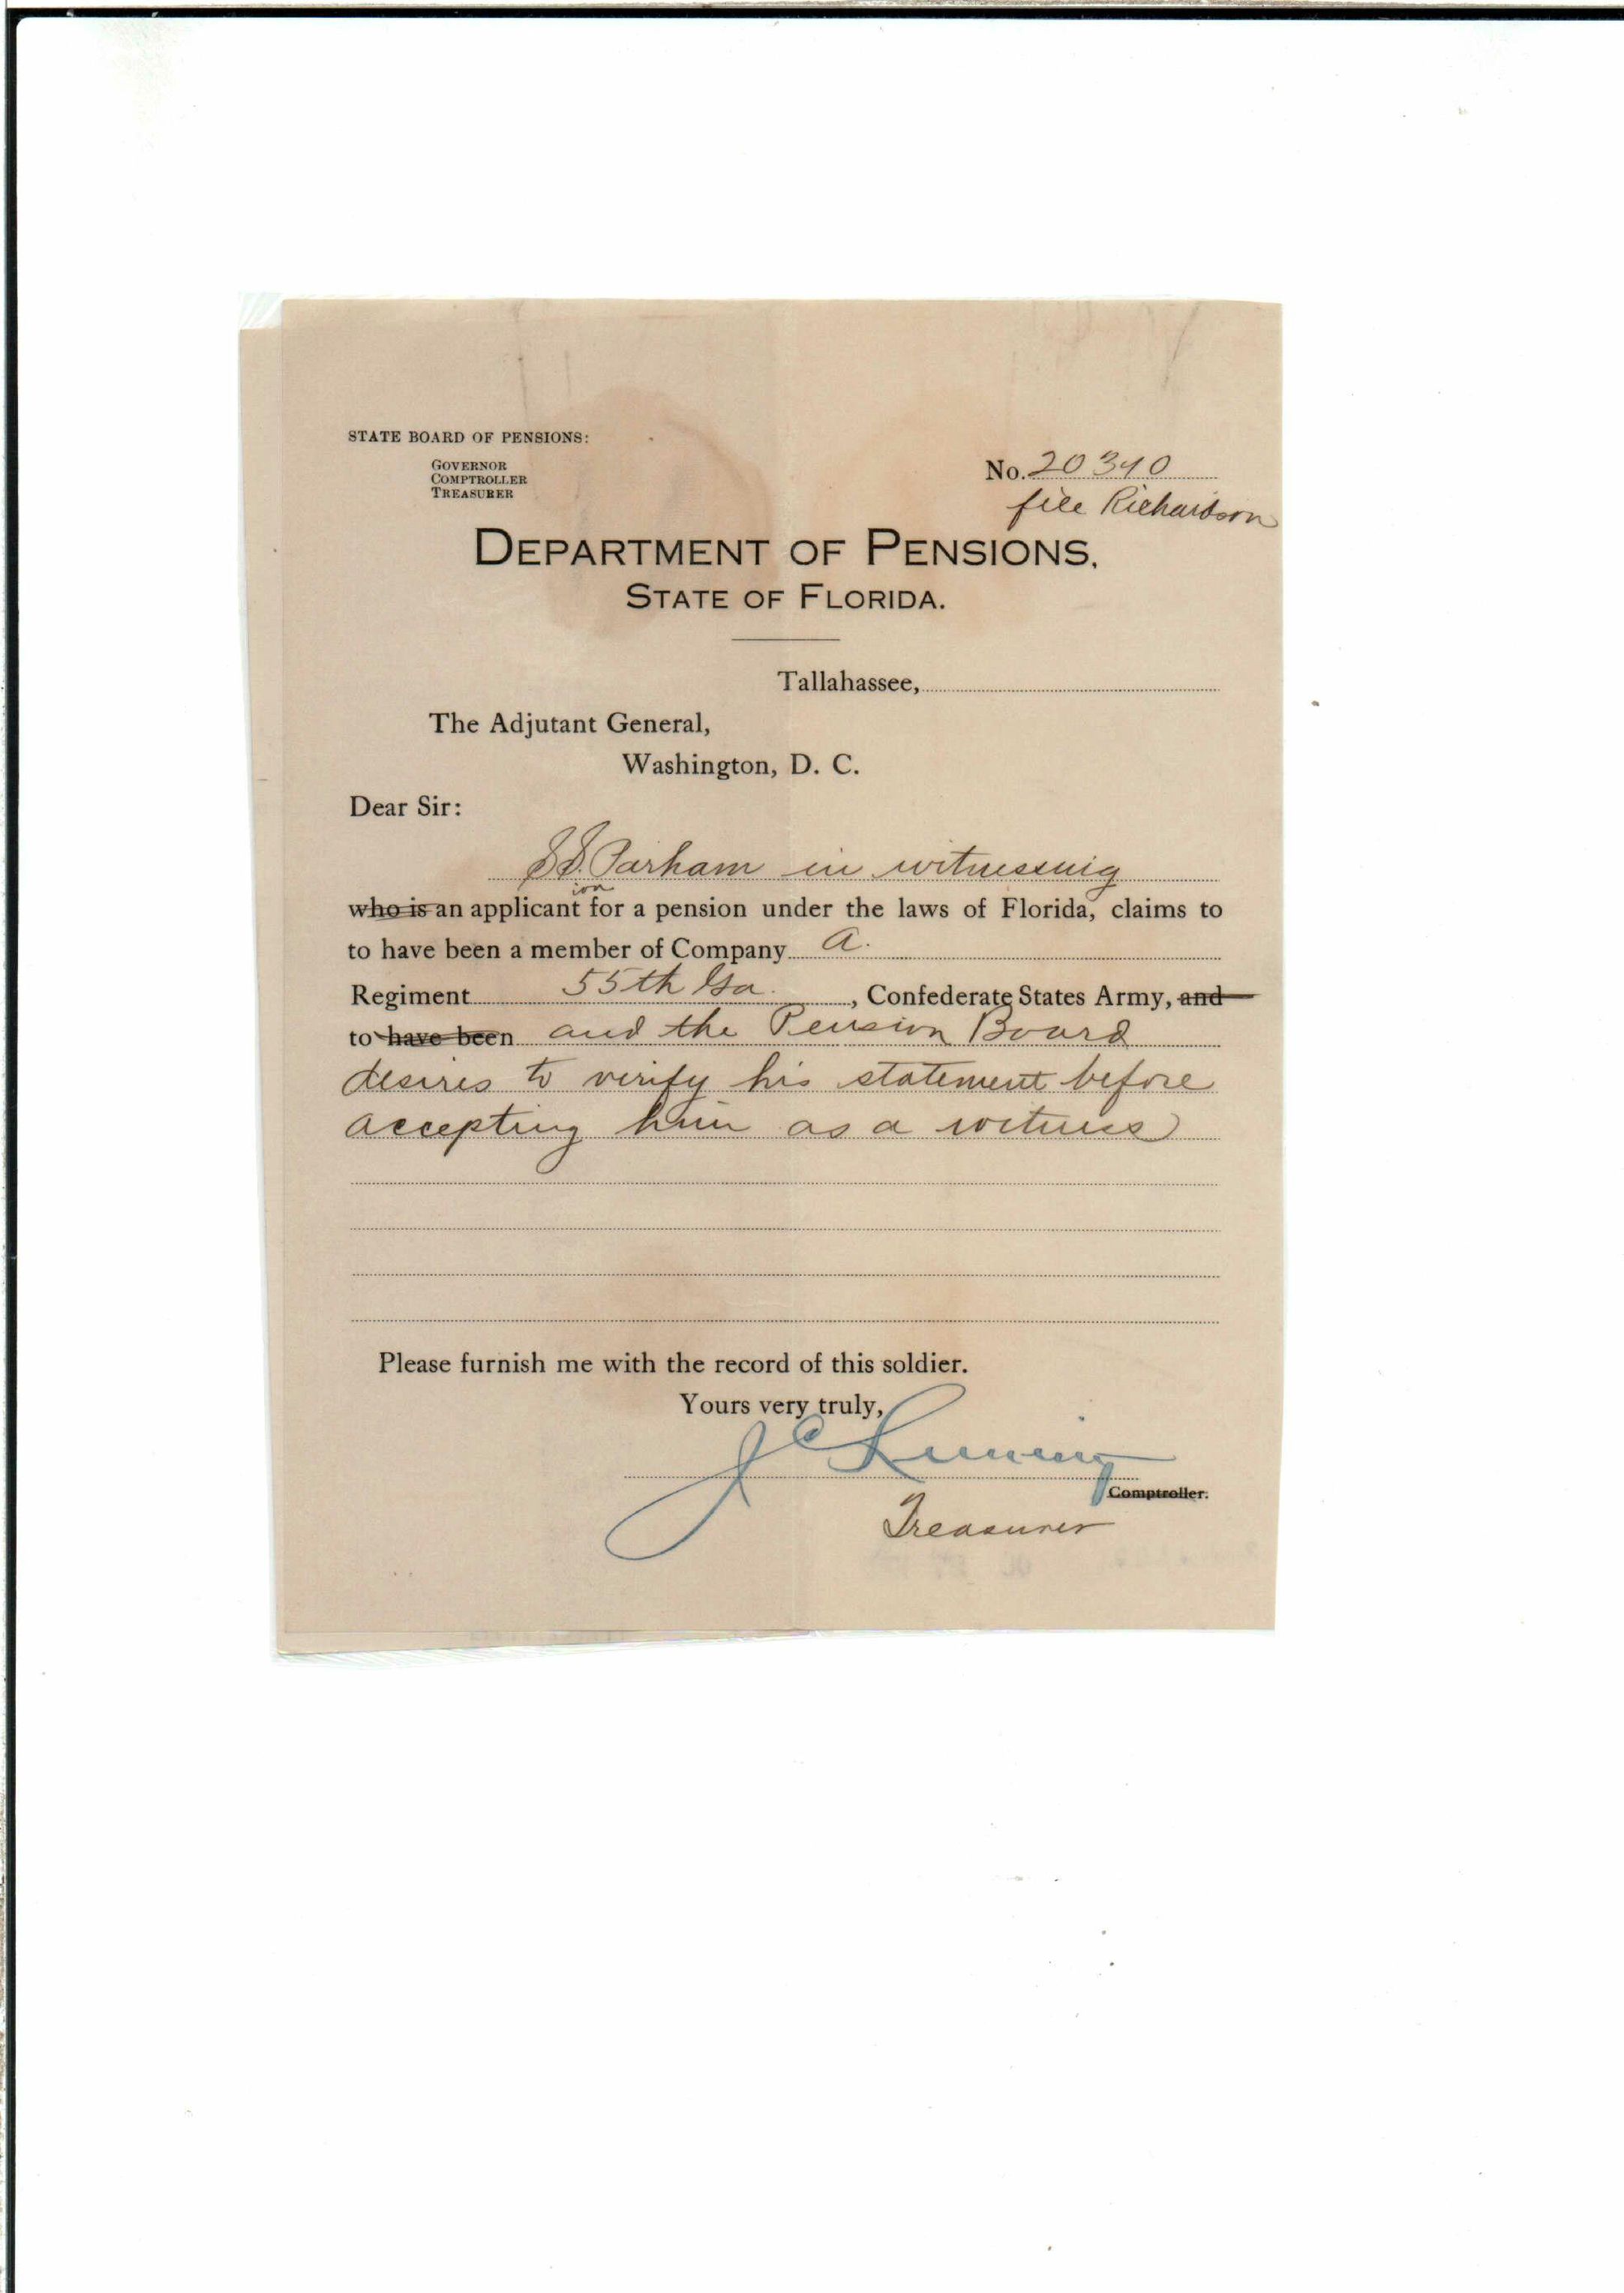 STATE BOARD OF PENSIONS:
GOVERNOR
COMPTROLLER
TREASURER
No. 20340
file Richardson
DEPARTMENT OF PENSIONS,
STATE OF FLORIDA.
Tallahassee,
The Adjutant General,
Washington, D. C.
Dear Sir:
Parham in witnessing
ion
who is an applicant for a pension under the laws of Florida, claims to
to have been a member of Company A.
Regiment 55th Ga. , Confederate States Army, and
to have been and the Pension Board
desires to verify his statement before
accepting him as a witness
Please furnish me with the record of this soldier.
Yours very truly,
J C Luning
Comptroller.
Treasurer